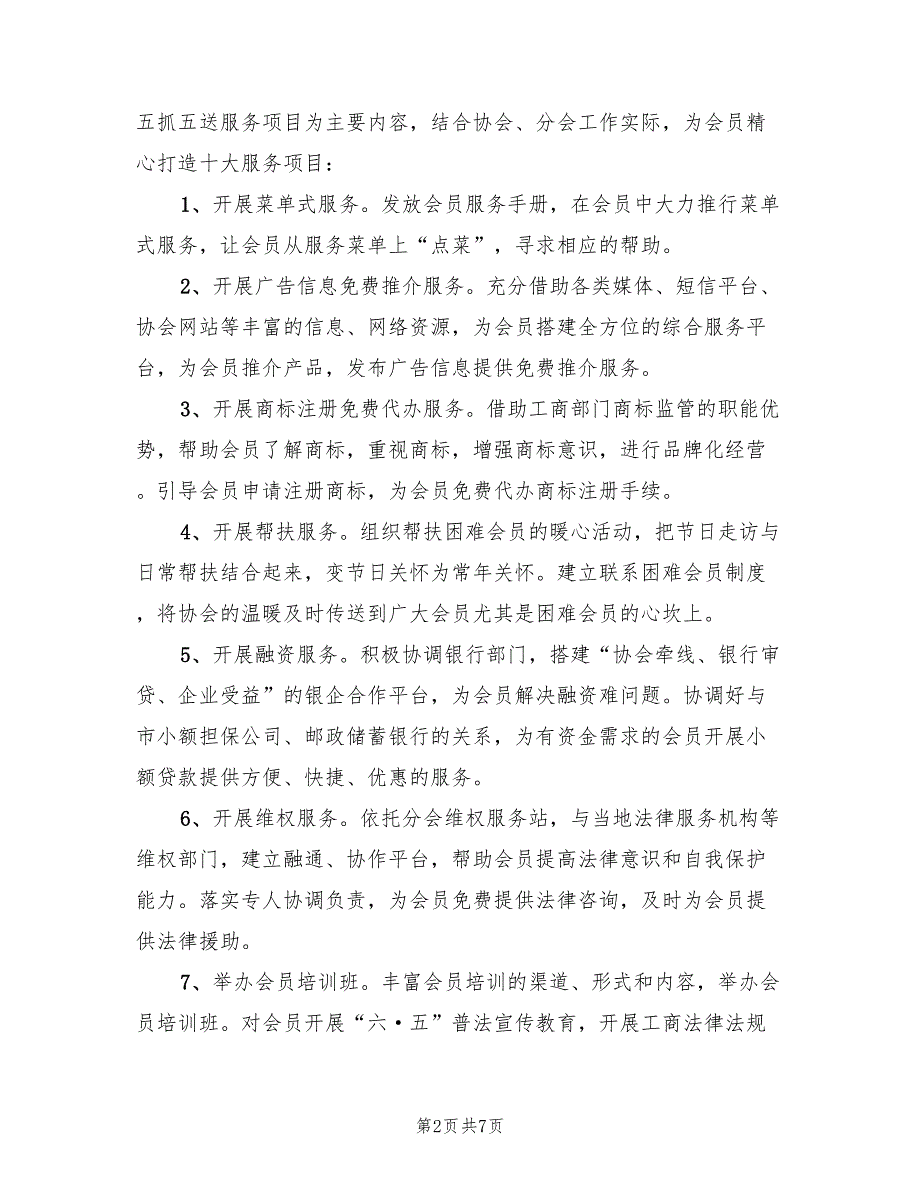 五抓五送服务项目为主要内容，结合协会、分会工作实际，为会员精
心打造十大服务项目：
1、开展菜单式服务。发放会员服务手册，在会员中大力推行菜单
式服务，让会员从服务菜单上“点菜”，寻求相应的帮助。
2、开展广告信息免费推介服务。充分借助各类媒体、短信平台、
协会网站等丰富的信息、网络资源，为会员搭建全方位的综合服务平
台，为会员推介产品，发布广告信息提供免费推介服务。
3、开展商标注册免费代办服务。借助工商部门商标监管的职能优
势，帮助会员了解商标，重视商标，增强商标意识，进行品牌化经营
。引导会员申请注册商标，为会员免费代办商标注册手续。
4、开展帮扶服务。组织帮扶困难会员的暖心活动，把节日走访与
日常帮扶结合起来，变节日关怀为常年关怀。建立联系困难会员制度
，将协会的温暖及时传送到广大会员尤其是困难会员的心坎上。
5、开展融资服务。积极协调银行部门，搭建“协会牵线、银行审
贷、企业受益”的银企合作平台，为会员解决融资难问题。协调好与
市小额担保公司、邮政储蓄银行的关系，为有资金需求的会员开展小
额贷款提供方便、快捷、优惠的服务。
6、开展维权服务。依托分会维权服务站，与当地法律服务机构等
维权部门，建立融通、协作平台，帮助会员提高法律意识和自我保护
能力。落实专人协调负责，为会员免费提供法律咨询，及时为会员提
供法律援助。
7、举办会员培训班。丰富会员培训的渠道、形式和内容，举办会
员培训班。对会员开展“六·五”普法宣传教育，开展工商法律法规
第2页共7页